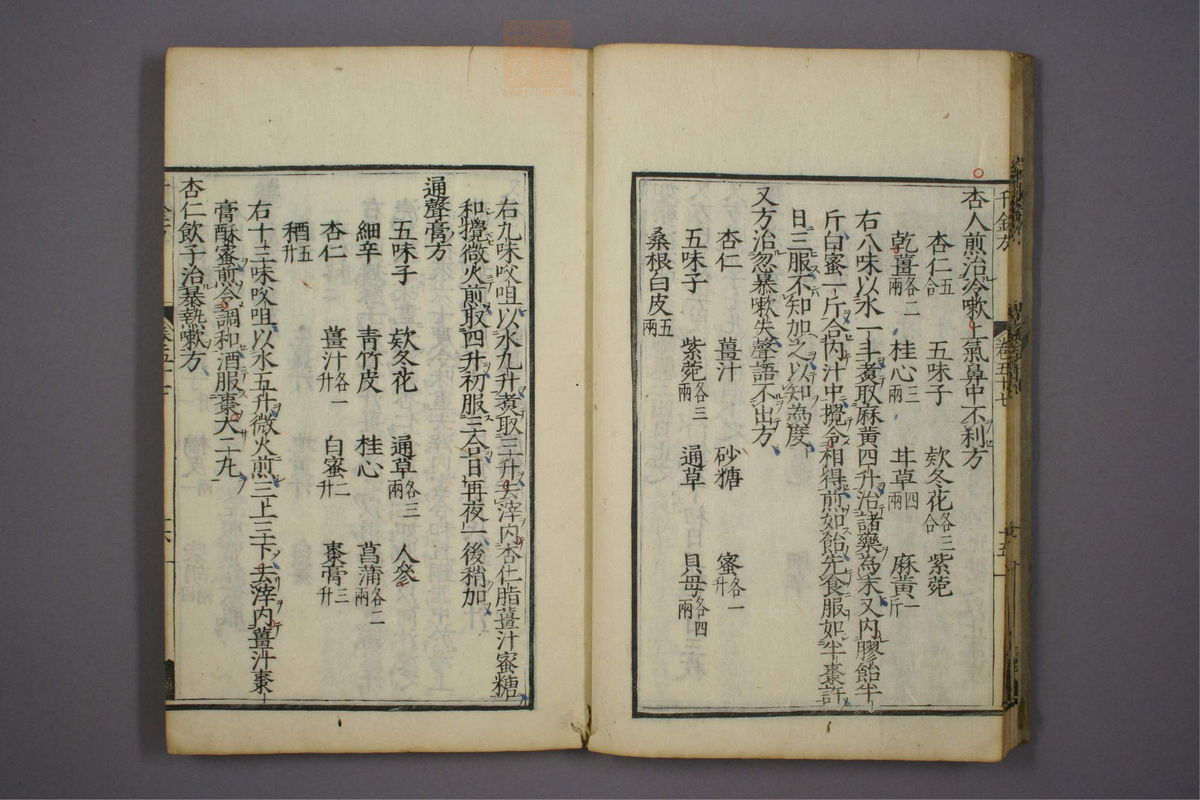 杏人煎治冷嗽上氣鼻中不利方
杏仁五合　五味子　欵冬花各三合　紫菀
乾薑各二兩　桂心三兩　甘草四兩　麻黃一斤
右八味以水一斗煮取麻黃四升治諸藥為末又内膠飴半
斤白蜜一斤合内汁中攪令相得煎如飴先食服如半棗許
日三服不知加之以知為度
又方治忽暴嗽失聲語不出方
杏仁　薑汁　砂糖　蜜各一升
五味子　紫菀各三兩　通草　貝母各四兩
桑根白皮五兩
右九味㕮咀以水九升煮取三升去滓内杏仁脂薑汁蜜糖
和攪微火煎取四升初服三合日再夜一後稍加
通聲膏方
五味子　欵冬花　通草各三兩　人參
細辛　青竹皮　桂心　菖蒲各二兩
杏仁　薑汁各一升　白蜜二升　棗膏三升
酒五升
右十三味㕮咀以水五升微火煎三上三下去滓内薑汁棗
膏酥蜜煎令調和酒服棗大二丸
杏仁飲子治暴熱嗽方